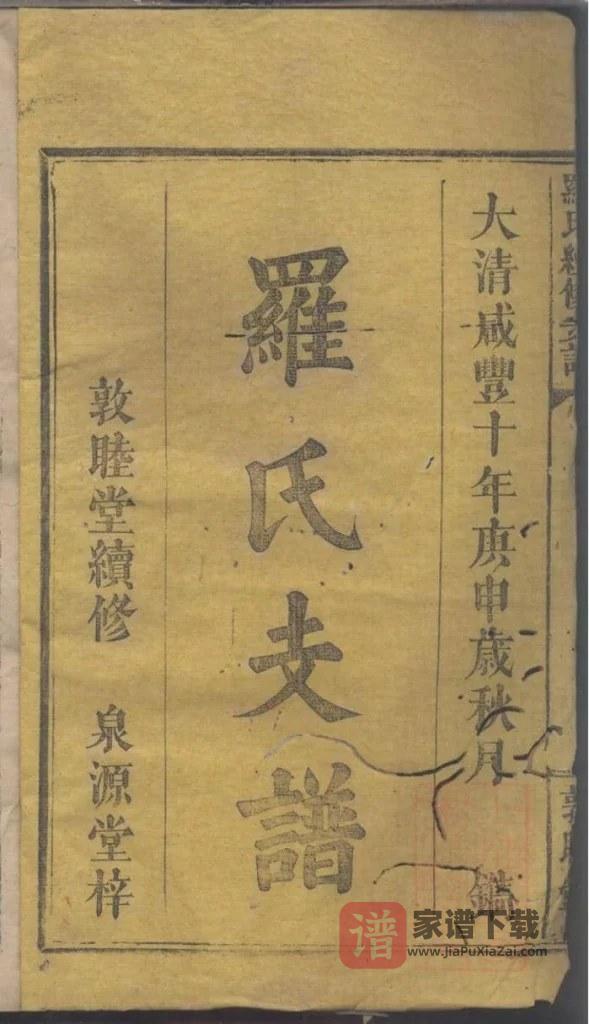 大清咸豐十年庚申歲秋月 鐫
羅氏支譜
敦睦堂續修 泉源堂梓
羅氏續修支譜
谱 家谱下载
www.JiaPuXiaZai.com